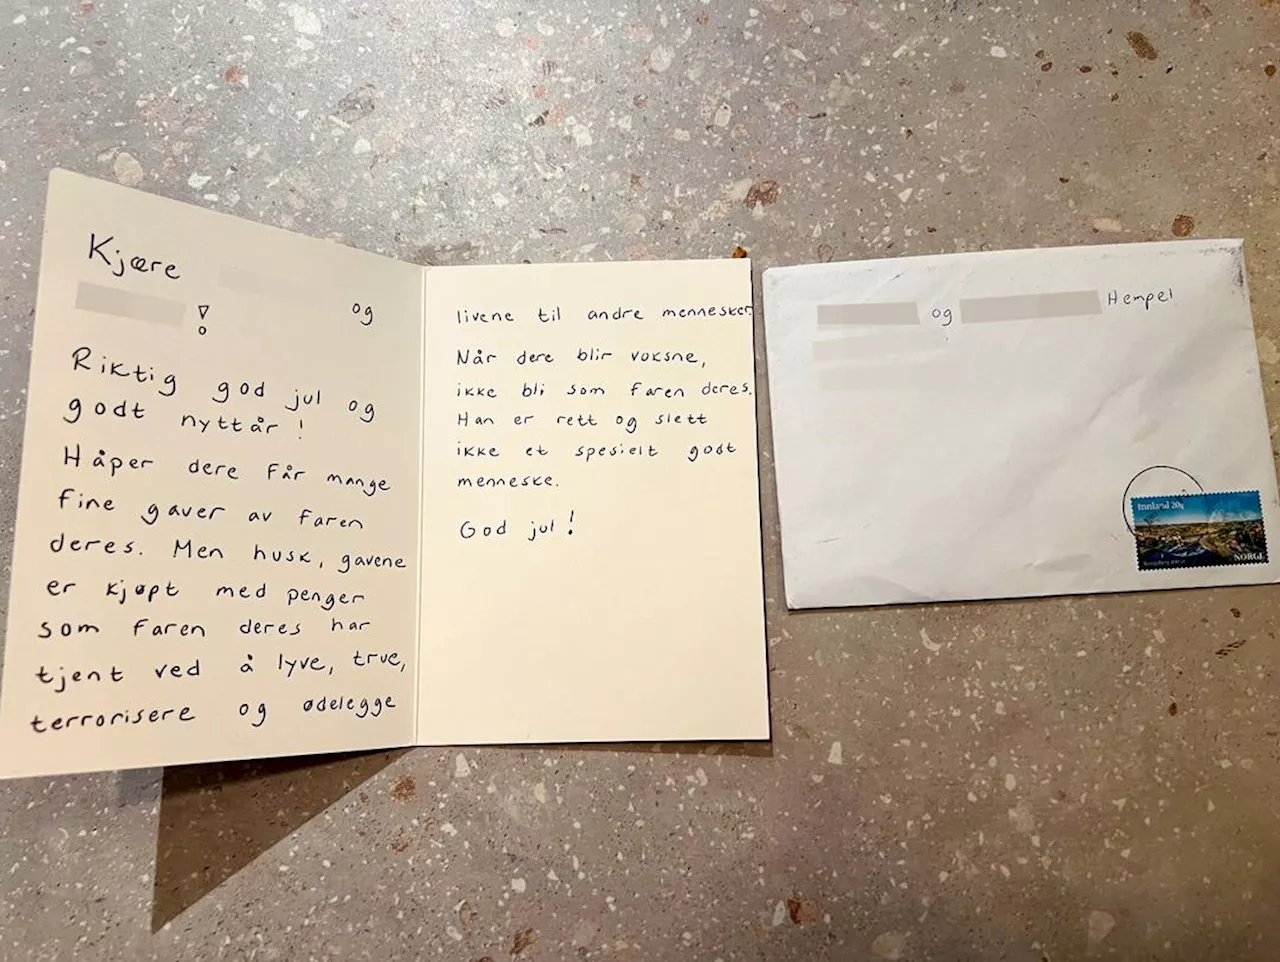 Kjære
og
!
Riktig god jul og
godt nyttår!
Håper dere får mange
fine gaver av faren
deres. Men husk, gavene
er kjøpt med penger
som faren deres har
tjent ved å lyve, true,
terrorisere og ødelegge
livene til andre mennesker.
Når dere blir voksne,
ikke bli som faren deres.
Han er rett og slett
ikke et spesielt godt
menneske.
God jul!
og Hempel
Innland 20g
NORGE